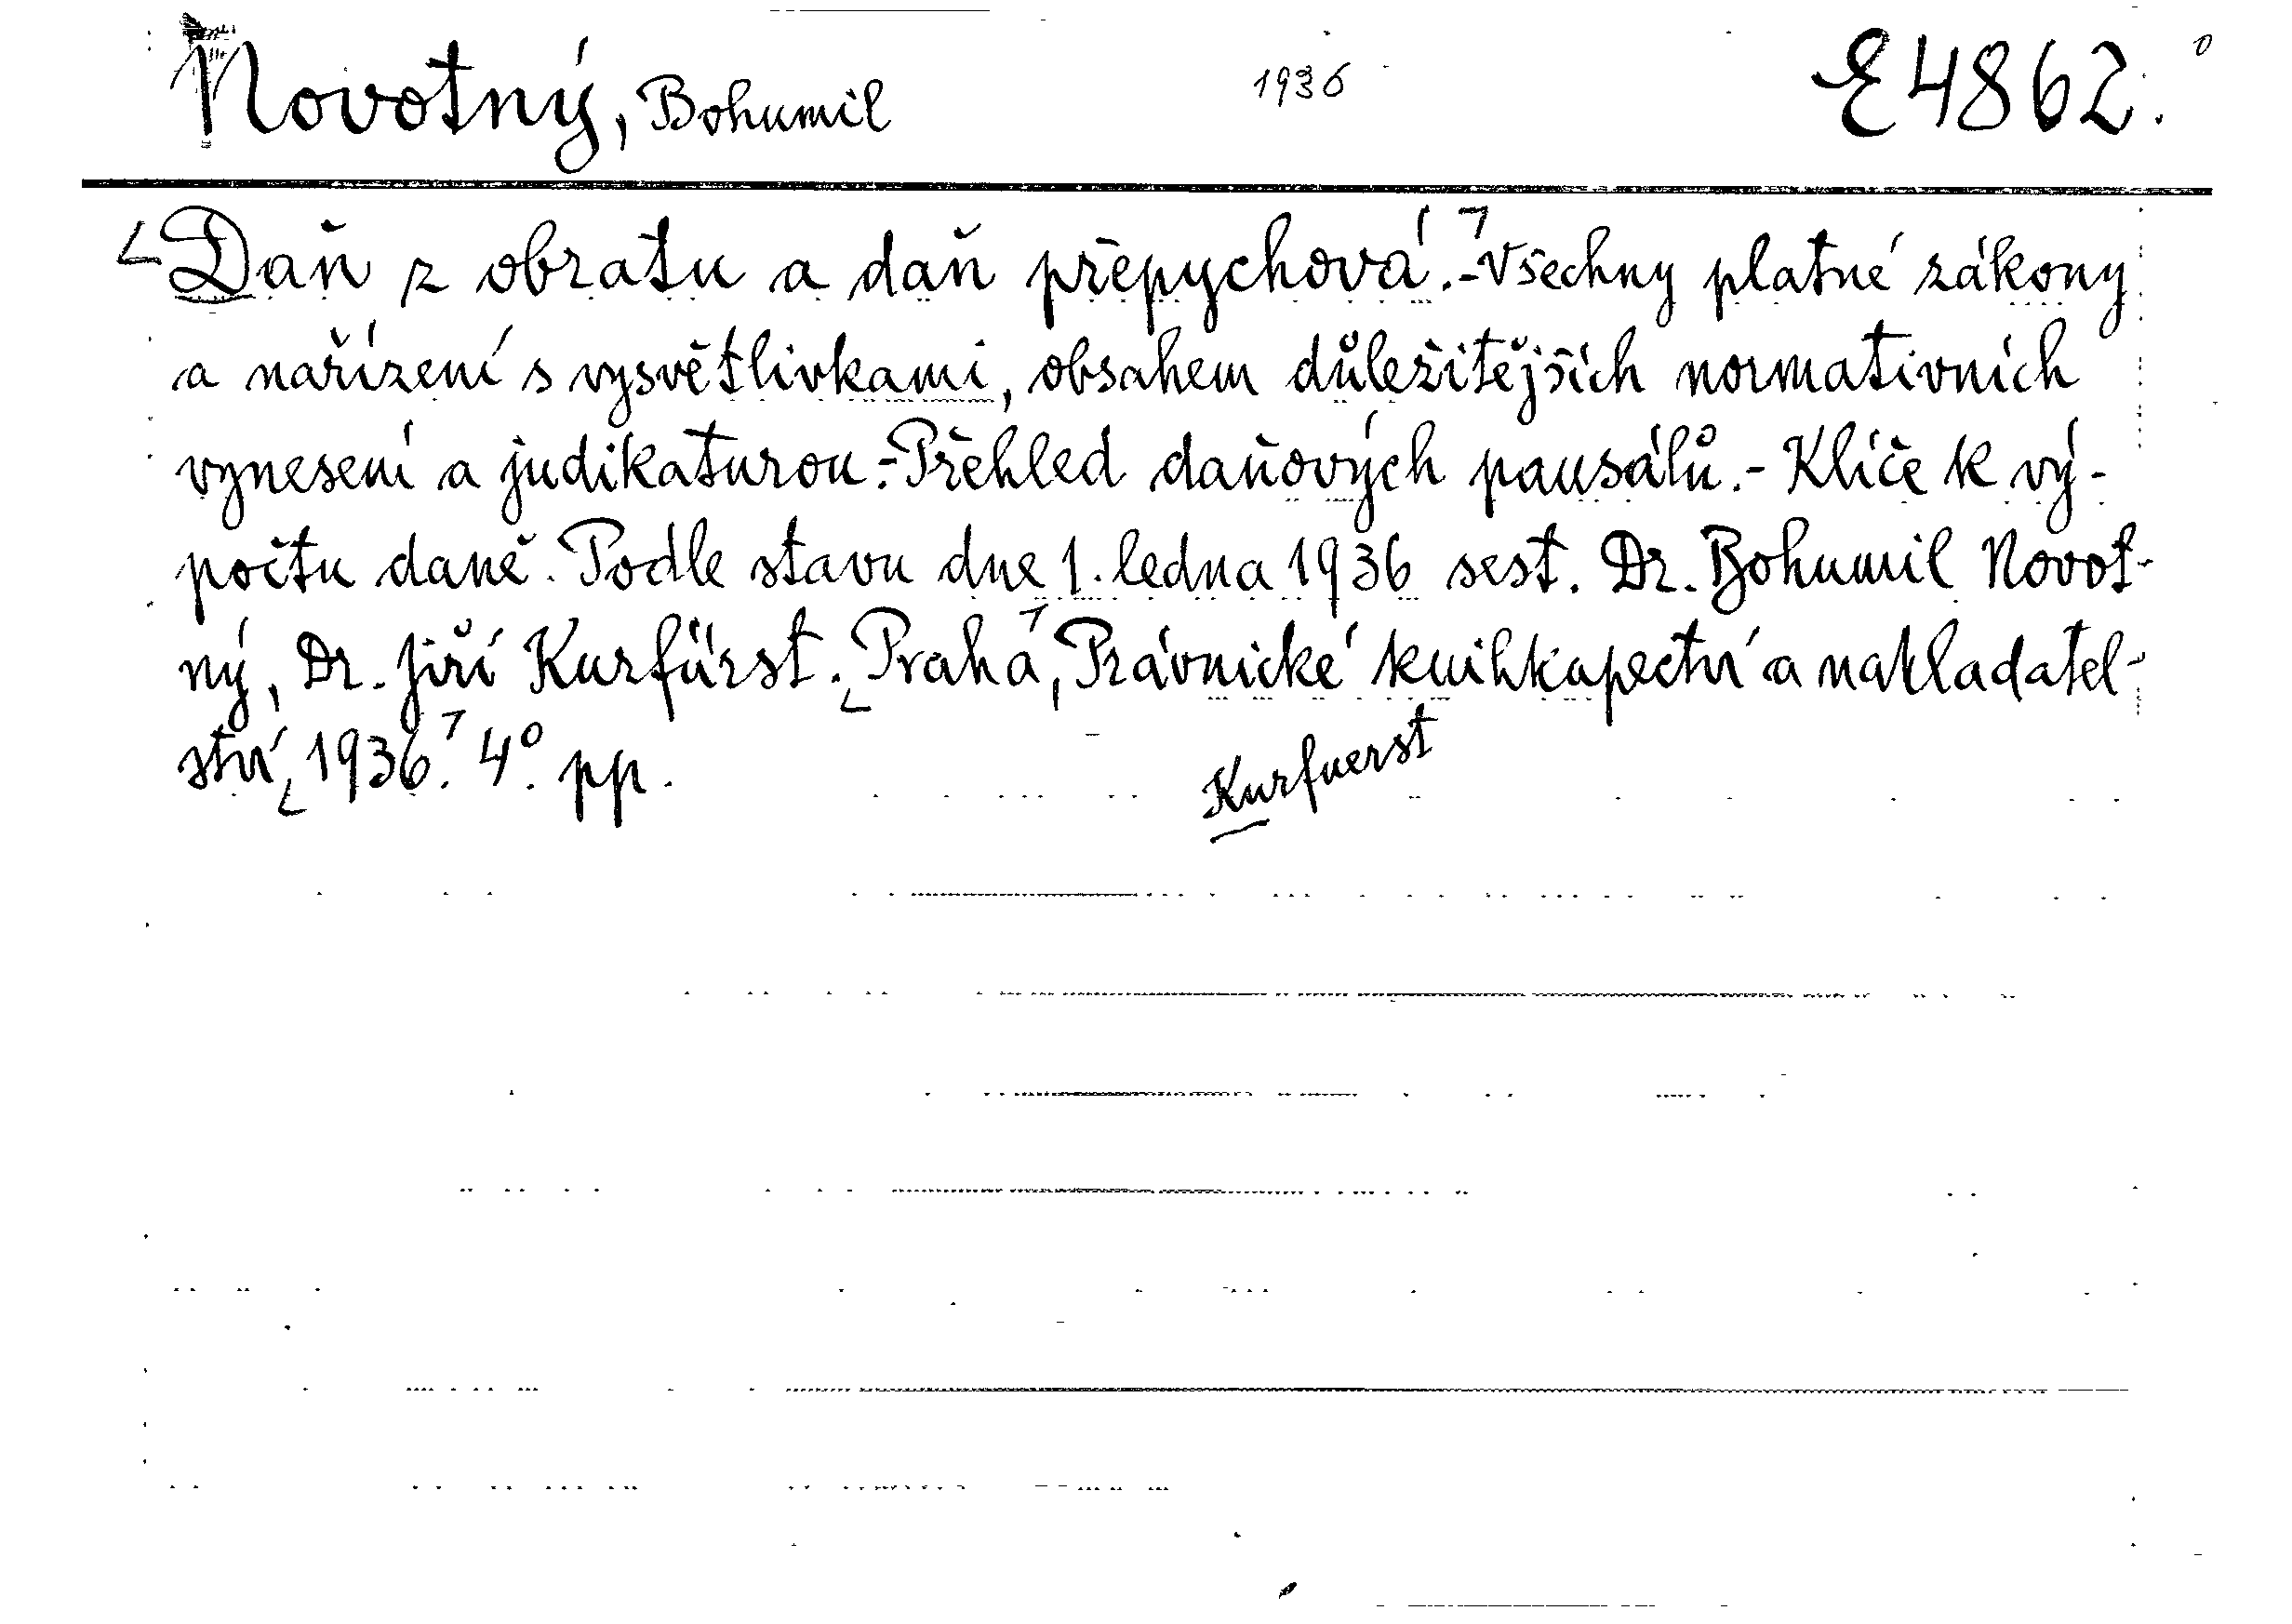 Novotný, Bohumil 1936 E4862.
Daň z obratu a daň přepychová.-Všechny platné zákony
a nařízení s vysvětlivkami, obsahem důležitějších normativních
vynesení a judikaturou.-Přehled daňových pausálů.- Klíče k vý-
počtu daně. Podle stavu dne 1. ledna 1936 sest. Dr. Bohumil Novot-
ný, Dr. Jiří Kurfürst. Praha, Právnické knihkupectví a nakladatel-
ství, 1936. 4°. pp.
Kurfuerst